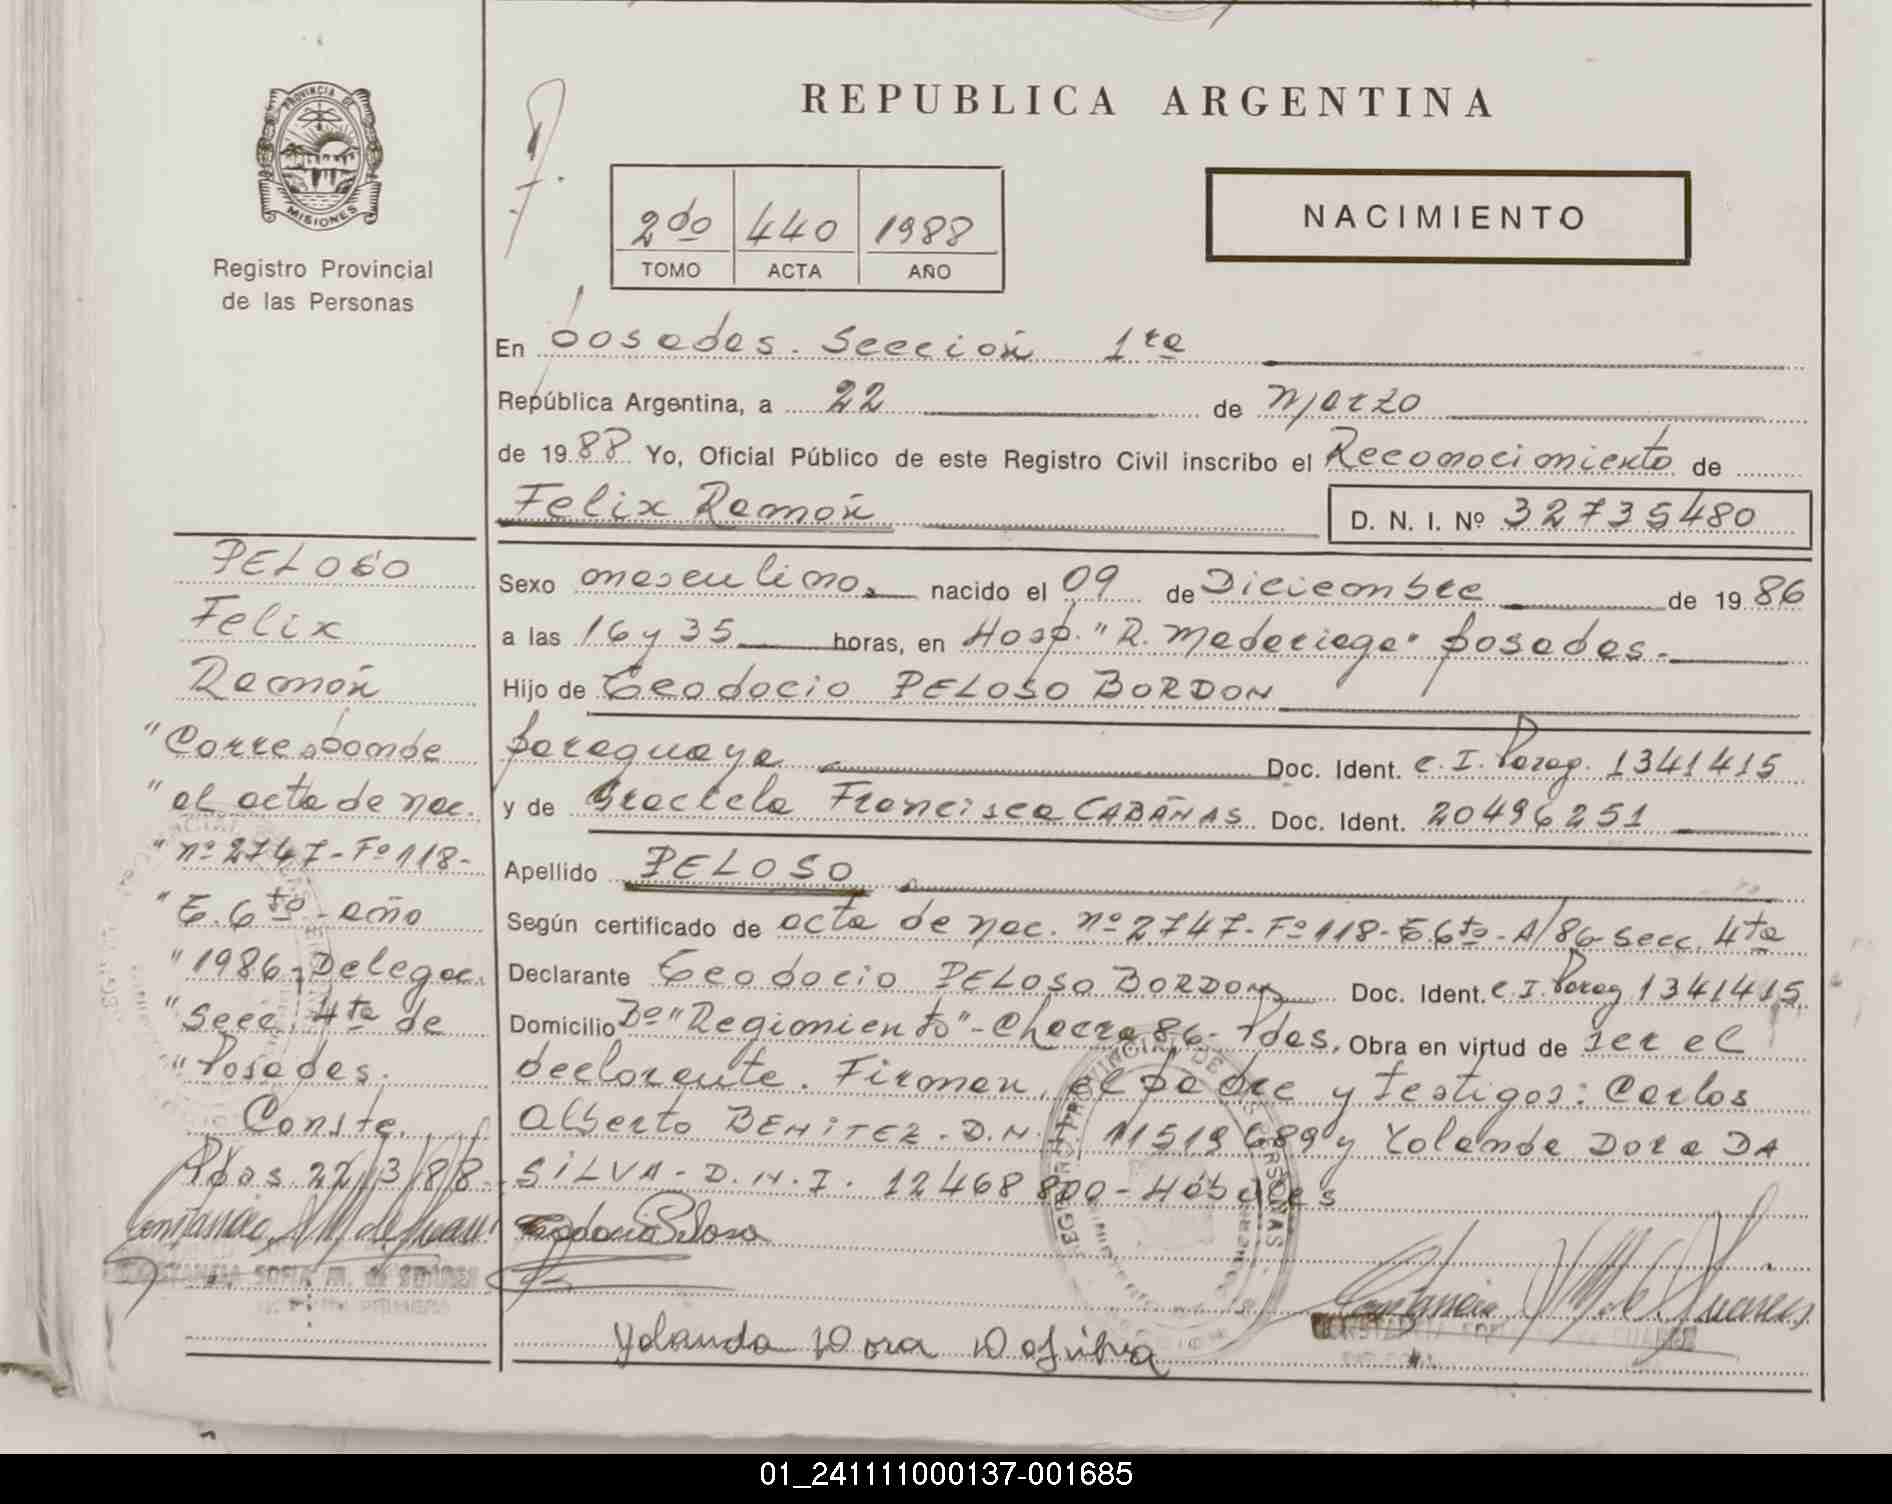 PROVINCIA DE
MISIONES
Registro Provincial
de las Personas
REPUBLICA ARGENTINA
2do 440 1988
TOMO ACTA AÑO
NACIMIENTO
En posadas. Sección 1ra
República Argentina, a 22 de Marzo
de 1988 Yo, Oficial Público de este Registro Civil inscribo el Reconocimiento de
Felix Ramón D. N. I. Nº 32735480
Sexo masculino. nacido el 09 de Diciembre de 1986
a las 16 y 35 horas, en Hosp. "R. Madariaga" posadas.
Hijo de Teodocio PELOSO BORDON
paraguaya Doc. Ident. C. I. Parag. 1341415
y de Graciela Francisca CABAÑAS Doc. Ident. 20496251
Apellido PELOSO
Según certificado de acta de nac. nº 2747-Fº 118-T. 6to-A/86 Secc. 4ta
Declarante Teodocio PELOSO BORDON Doc. Ident. C I. Parag 1341415
Domicilio Bº "Regimiento"-Chacra 86- Pdas. Obra en virtud de ser el
declarante. Firman, el padre y testigos: Carlos
Alberto BENITEZ-D.N.I. 11519689 y Yolanda Dora DA
SILVA-D.N.I. 12468800-Hábiles
PELOSO
Felix
Ramón
"Corresponde
"al acta de nac.
"nº 2747-Fº 118-
"T. 6to-año
"1986-Delegac.
"Secc. 4ta de
"Posadas.
Conste.
Pdas. 22/3/88
CONSTANCIA SOFIA M. de SUAREZ
Teodocio Peloso
Yolanda Dora Da Silva
REGISTRO PROVINCIAL DE LAS PERSONAS
01_241111000137-001685